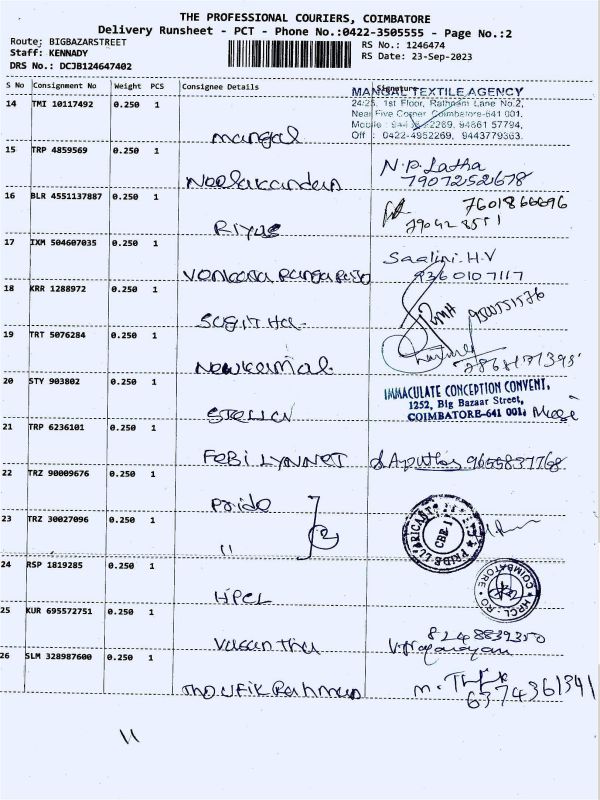 THE PROFESSIONAL COURIERS, COIMBATORE
Delivery Runsheet - PCT - Phone No.:0422-3505555 - Page No.:2
Route; BIGBAZARSTREET
Staff: KENNADY
DRS No.: DCJB124647402
RS No.: 1246474
RS Date: 23-Sep-2023
S No Consignment No Weight PCS Consignee Details Signature
MANGAL TEXTILE AGENCY
24/25, 1st Floor, Rathnam Lane No.2,
Near Five Corner, Coimbatore-641 001.
Mobile : 94 2269, 94861 57794,
Off : 0422-4952269, 9443779363.
14 TMI 10117492 0.250 1
mangal
15 TRP 4859569 0.250 1
Neelakandan
N.P. Latha
7907252678
16 BLR 4551137887 0.250 1
RIYAS
7601866696
17 IXM 504607035 0.250 1
Venkata Ranga
Saalini. H.V
9360107117
18 KRR 1288972 0.250 1
SUGITHA
19 TRT 5076284 0.250 1
New Kamal
20 STY 903802 0.250 1
STELLA
IMMACULATE CONCEPTION CONVENT,
1252, Big Bazaar Street,
COIMBATORE-641 001.
21 TRP 6236101 0.250 1
FEBI LYNNET
9655837768
22 TRZ 90009676 0.250 1
Pride
23 TRZ 30027096 0.250 1
"
2
PRIDE LUBRICANTS
CBE-1
24 RSP 1819285 0.250 1
HPCL
HPCL - RO
COIMBATORE
25 KUR 695572751 0.250 1
Vasantha
8248839350
26 SLM 328987600 0.250 1
Thoufik Rahman
6374361341